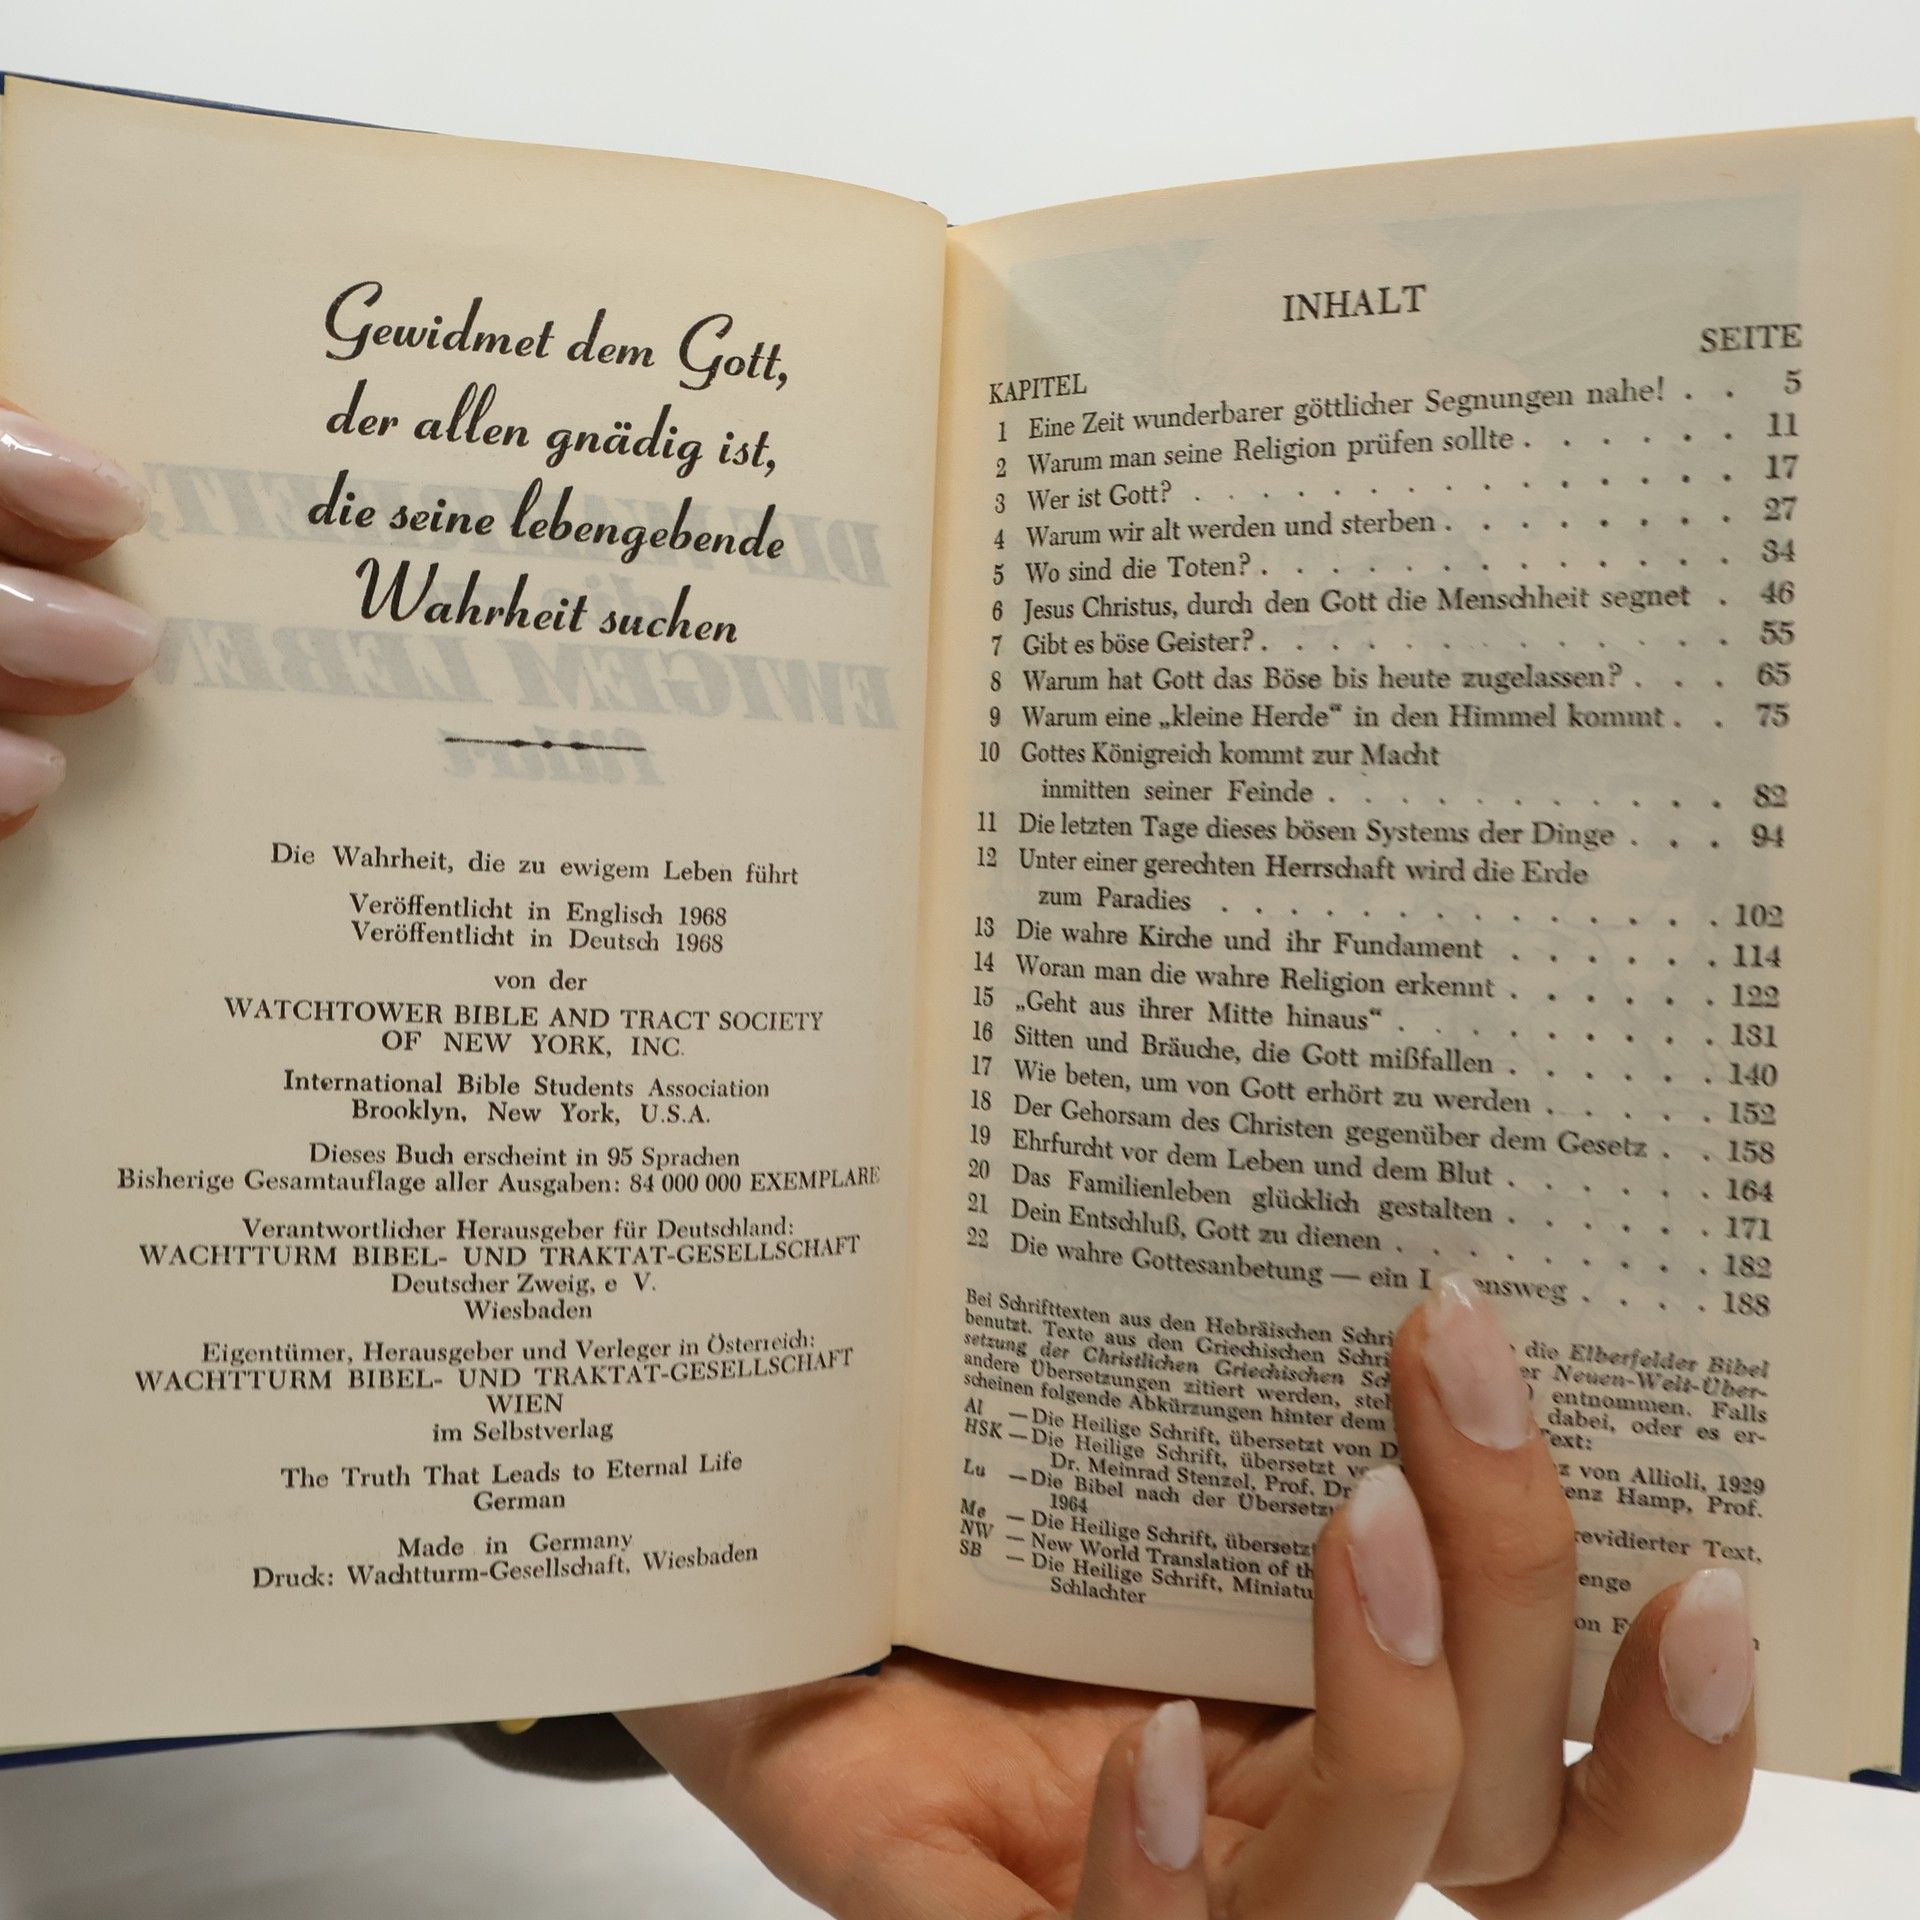 Gewidmet dem Gott,
der allen gnädig ist,
die seine lebengebende
Wahrheit suchen
Die Wahrheit, die zu ewigem Leben führt
Veröffentlicht in Englisch 1968
Veröffentlicht in Deutsch 1968
von der
WATCHTOWER BIBLE AND TRACT SOCIETY
OF NEW YORK, INC.
International Bible Students Association
Brooklyn, New York, U.S.A.
Dieses Buch erscheint in 95 Sprachen
Bisherige Gesamtauflage aller Ausgaben: 84 000 000 EXEMPLARE
Verantwortlicher Herausgeber für Deutschland:
WACHTTURM BIBEL- UND TRAKTAT-GESELLSCHAFT
Deutscher Zweig, e V.
Wiesbaden
Eigentümer, Herausgeber und Verleger in Österreich:
WACHTTURM BIBEL- UND TRAKTAT-GESELLSCHAFT
WIEN
im Selbstverlag
The Truth That Leads to Eternal Life
German
Made in Germany
Druck: Wachtturm-Gesellschaft, Wiesbaden
INHALT
KAPITEL SEITE
1 Eine Zeit wunderbarer göttlicher Segnungen nahe! . . 5
2 Warum man seine Religion prüfen sollte . . . . . . 11
3 Wer ist Gott? . . . . . . . . . . . . . . 17
4 Warum wir alt werden und sterben . . . . . . . . 27
5 Wo sind die Toten? . . . . . . . . . . . . . 34
6 Jesus Christus, durch den Gott die Menschheit segnet . 46
7 Gibt es böse Geister? . . . . . . . . . . . . 55
8 Warum hat Gott das Böse bis heute zugelassen? . . . 65
9 Warum eine „kleine Herde“ in den Himmel kommt . . 75
10 Gottes Königreich kommt zur Macht
inmitten seiner Feinde . . . . . . . . . . . 82
11 Die letzten Tage dieses bösen Systems der Dinge . . . 94
12 Unter einer gerechten Herrschaft wird die Erde
zum Paradies . . . . . . . . . . . . . . 102
13 Die wahre Kirche und ihr Fundament . . . . . . 114
14 Woran man die wahre Religion erkennt . . . . . . 122
15 „Geht aus ihrer Mitte hinaus“ . . . . . . . . . 131
16 Sitten und Bräuche, die Gott mißfallen . . . . . . 140
17 Wie beten, um von Gott erhört zu werden . . . . . 152
18 Der Gehorsam des Christen gegenüber dem Gesetz . . 158
19 Ehrfurcht vor dem Leben und dem Blut . . . . . . 164
20 Das Familienleben glücklich gestalten . . . . . . 171
21 Dein Entschluß, Gott zu dienen . . . . . . . . 182
22 Die wahre Gottesanbetung — ein . . . . 188
Bei Schrifttexten aus den Hebräischen die Elberfelder Bibel
benutzt. Texte aus den Griechischen Neuen-Welt-Über-
setzung der Christlichen Griechischen entnommen. Falls
andere Übersetzungen zitiert werden, dabei, oder es er-
scheinen folgende Abkürzungen hinter dem Text:
Al — Die Heilige Schrift, übersetzt von von Allioli, 1929
HSK — Die Heilige Schrift, übersetzt Hamp, Prof.
Dr. Meinrad Stenzel, Prof.
Lu — Die Bibel nach der revidierter Text,
1964
Me — Die Heilige Schrift,
NW — New World Translation of
SB — Die Heilige Schrift,
Schlachter